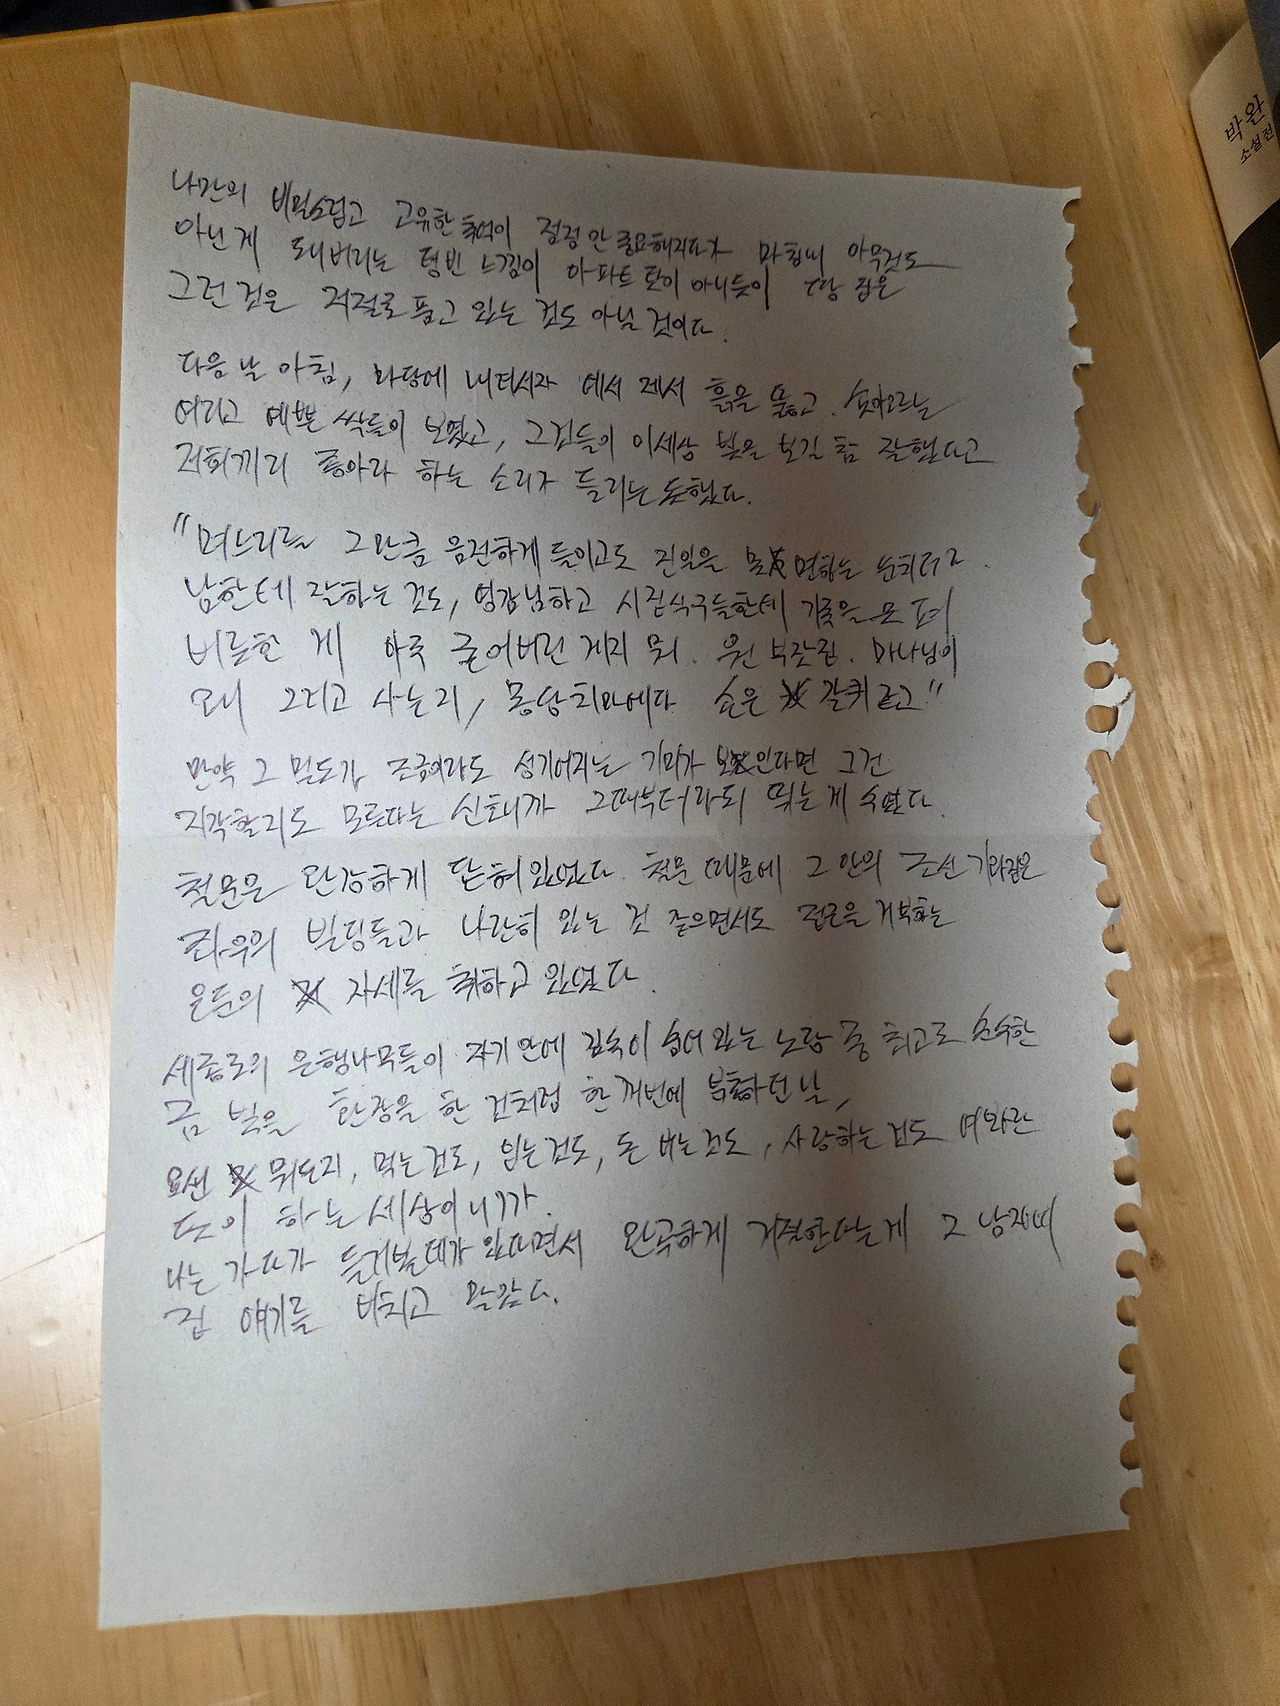 나만의 비밀스럽고 고유한 추억이 점점 안 중요해지다가 마침내 아무것도
아닌게 돼버리는 텅빈 느낌이 아파트 탓이 아니듯이 땅 집은
그런 것을 저절로 품고 있는 것도 아닐 것이다.
다음 날 아침, 마당에 내려서자 예서 제서 흙을 뚫고 솟아오르는
여리고 예쁜 싹들이 보였고, 그것들이 이세상 빛을 보길 참 잘했다고
저희끼리 좋아라 하는 소리가 들리는 듯했다.
"며느리를 그만큼 음전하게 들이고도 진일을 못 면하는
남한테 잘하는 것도, 영감님하고 시집식구들한테 기죽을 못 펴
버릇한 게 아주 굳어버린 게지 뭐. 원 부잣집 마나님이
왜 그러고 사는지, 몽당치마에다 손은 갈퀴 같고"
만약 그 밀도가 조금이라도 성기어지는 기미가 보인다면 그건
지각할지도 모른다는 신호니까 그때부터라도 뛰는게 수였다.
철문은 완강하게 닫혀있었다. 철문 때문에 그 안의 조선 기와집은
좌우의 빌딩들과 나란히 있는 것 같으면서도 접근을 거부하는
은둔의 자세를 취하고 있었다.
세종로의 은행나무들이 자기 안에 깊숙이 숨어 있는 노랑 중 최고로 순수한
금 빛을 환장을 한 것처럼 한꺼번에 분출하던 날,
요샌 뭐든지, 먹는 것도, 입는 것도, 돈 버는 것도, 사랑하는 것도 여와란
듯이 하는 세상이니까.
나는 가다가 들러볼데가 있다면서 완곡하게 거절한다는게 그 남자네
집 얘기를 비치고 말았다.
박완
소설전